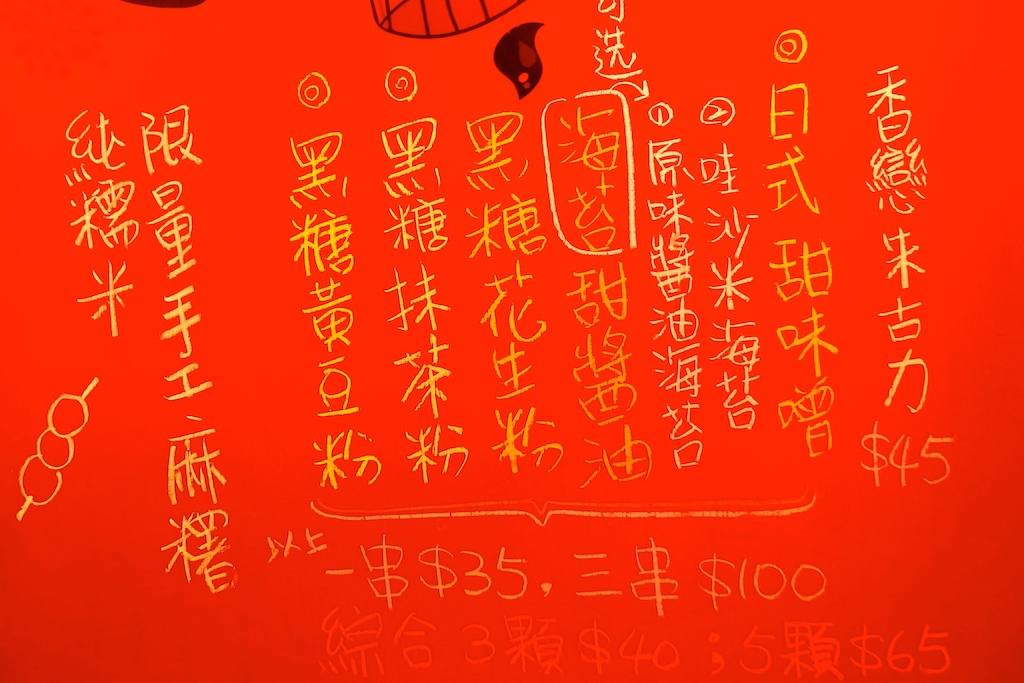 純糯米
限量手工麻糬
◎黑糖黃豆粉
◎黑糖抹茶粉
黑糖花生粉
海苔甜醬油
可选
①原味醬油海苔
②哇沙米海苔
◎日式甜味噌
香戀朱古力 $45
以上一串$35，三串$100
綜合3顆$40；5顆$65